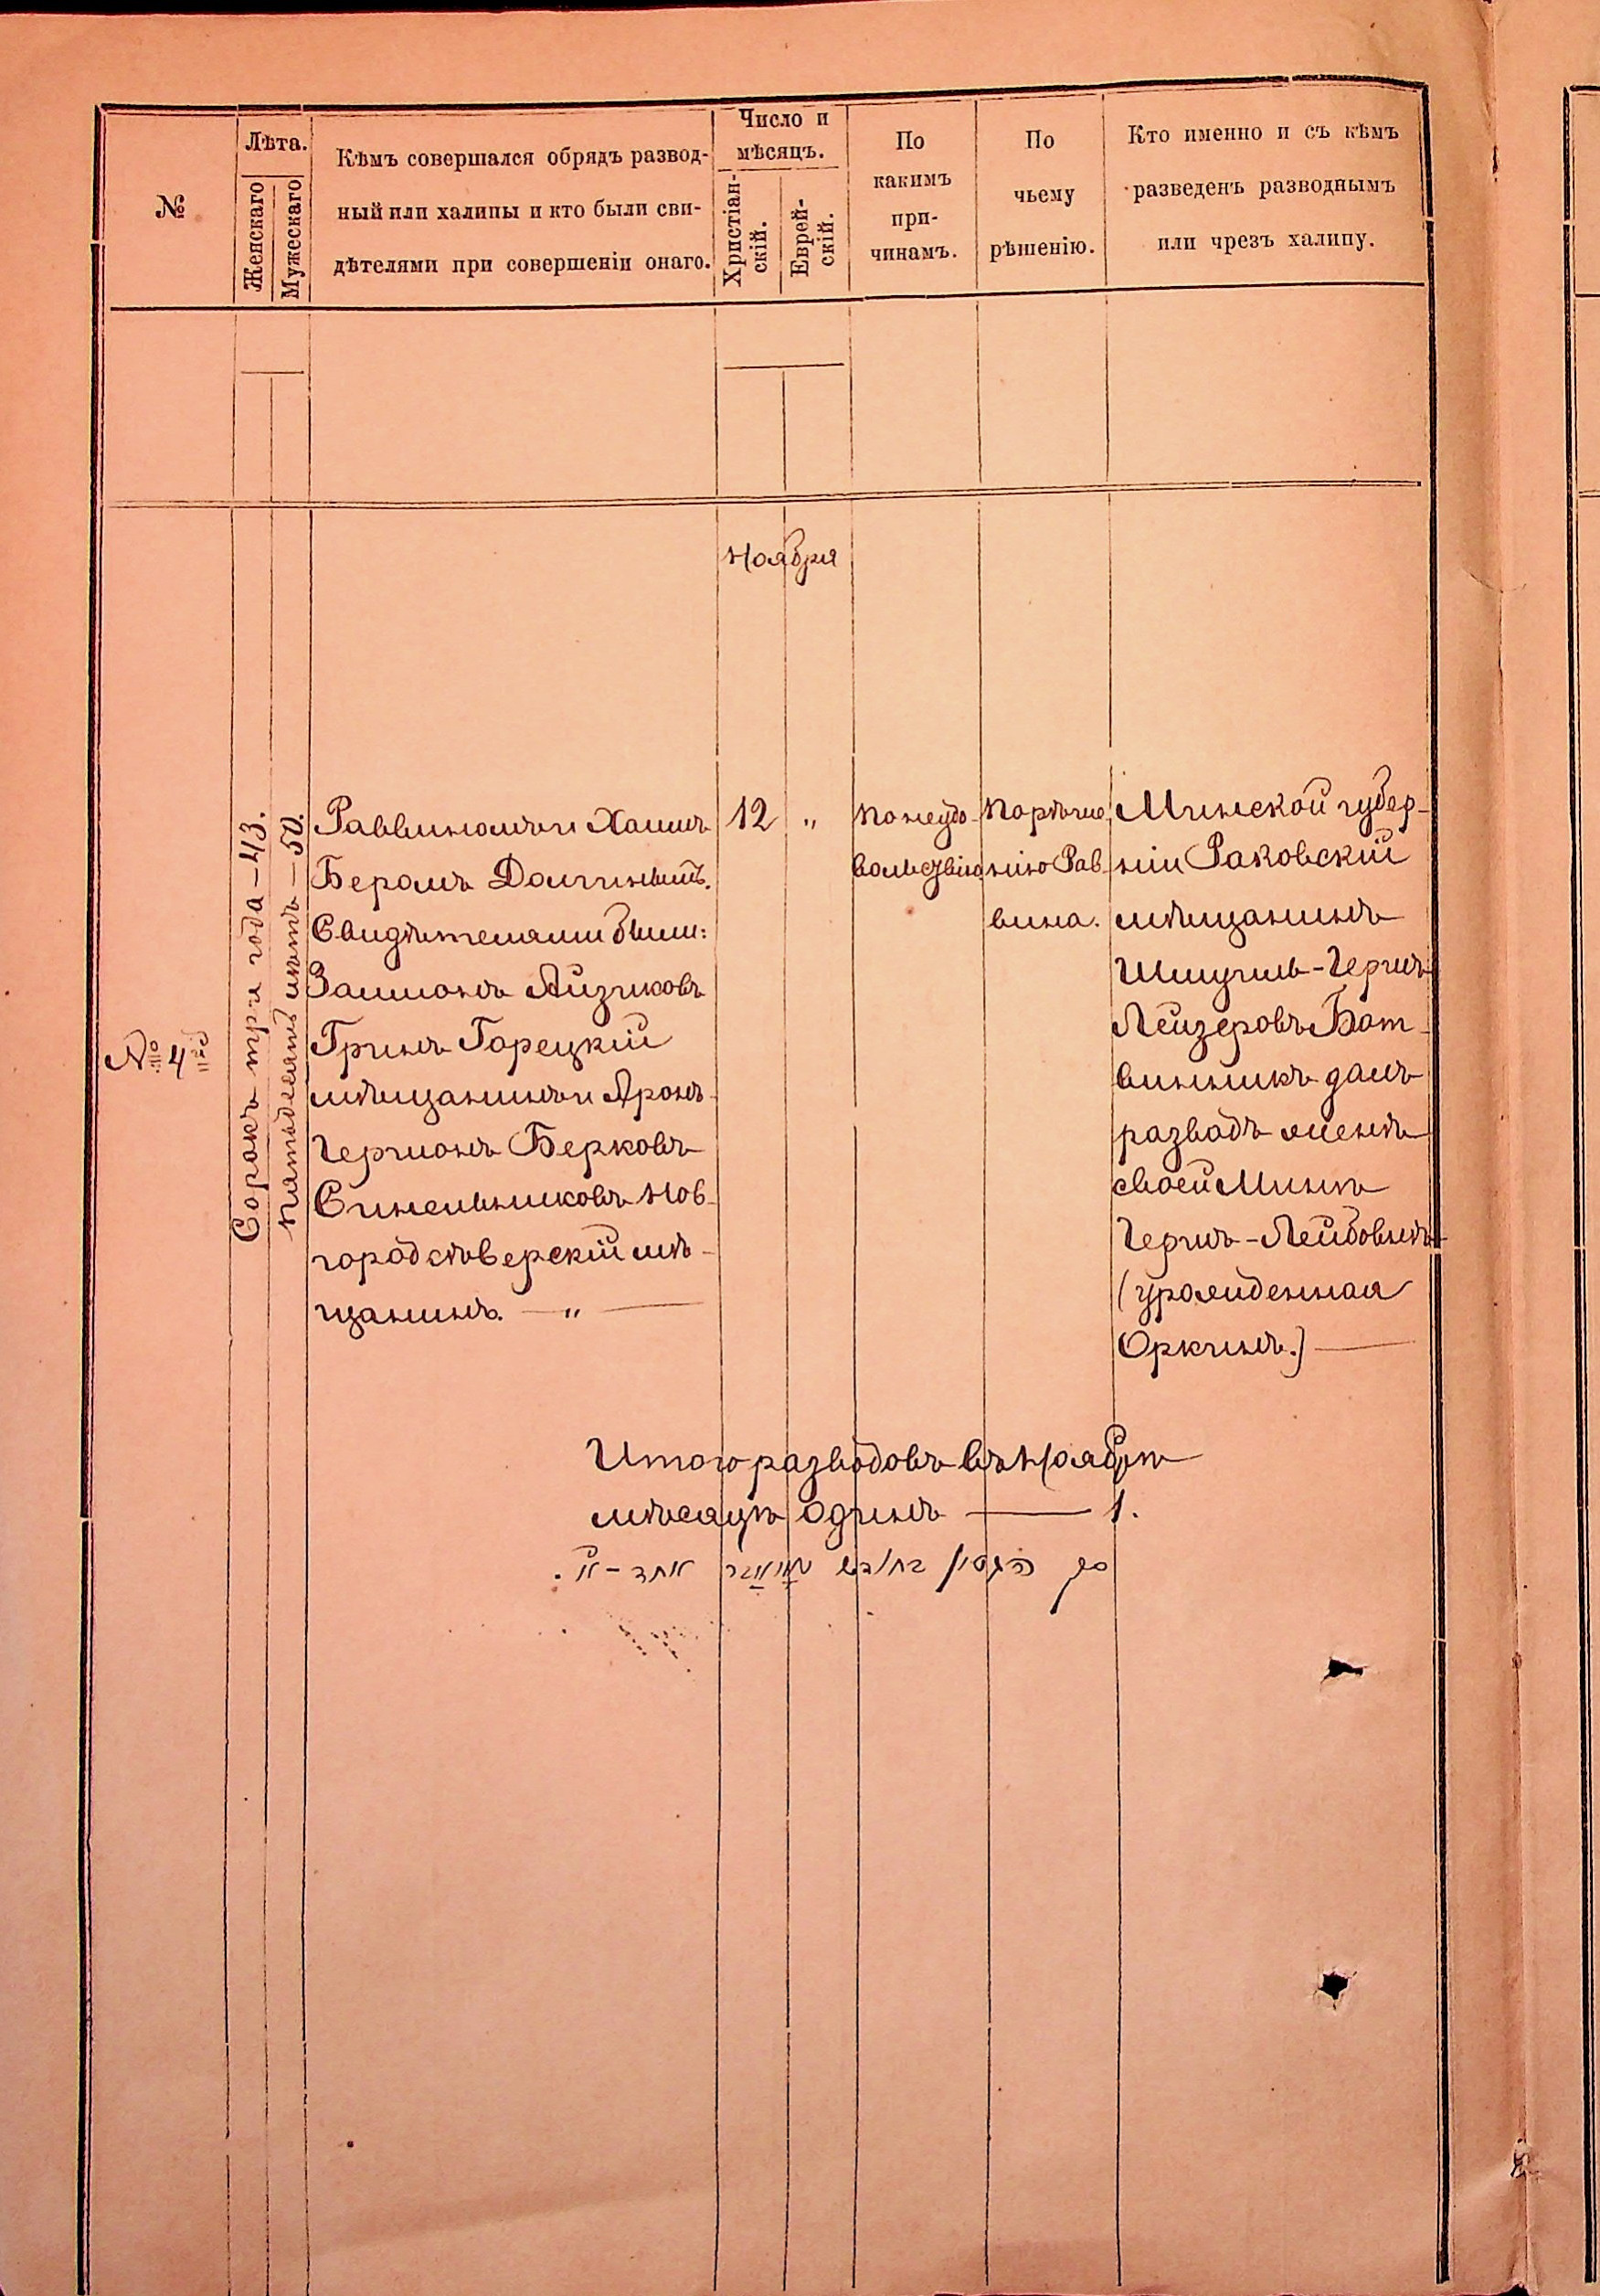 №
Лѣта.
Женскаго
Мужескаго
Кѣмъ совершался обрядъ развод-
ный или халицы и кто были сви-
дѣтелями при совершеніи онаго.
Число и
мѣсяцъ.
Христіан-
скій.
Еврей-
скій.
По
какимъ
при-
чинамъ.
По
чьему
рѣшенію.
Кто именно и съ кѣмъ
разведенъ разводнымъ
или чрезъ халицу.
Ноября
№ 4й
Сорокъ три года – 43.
Пятьдесятъ лѣтъ – 50.
Раввиномъ и Хаимъ
Беромъ
Свидѣтелями были:
Залмонъ Айзиковъ
Гринъ Горецкій
мѣщанинъ и Аронъ-
Гершонъ Берковъ
Синельниковъ Нов-
городсѣверскій мѣ-
щанинъ. — „ —
12
„
По неудо-
вольствію
По рѣше-
нію Рав-
вина.
Минской губер-
ніи Раковскій
мѣщанинъ
Шмуилъ-Гершъ
Лейзеровъ Бот-
винникъ далъ
разводъ женѣ
своей Минѣ
Гершъ-Лейбовнѣ
(урожденная
Оркинъ.) —
Итого разводовъ въ Ноябрѣ
мѣсяцѣ одинъ — 1.
סך הגטין בחודש נויאבר אחד - א'.